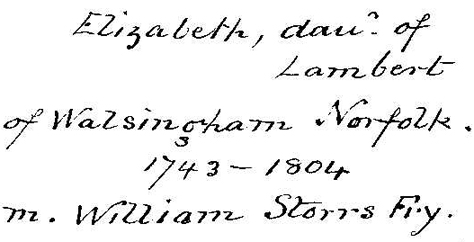 Elizabeth, dau.r of
Lambert
of Walsingham Norfolk.
1743 – 1804
m. William Storrs Fry.